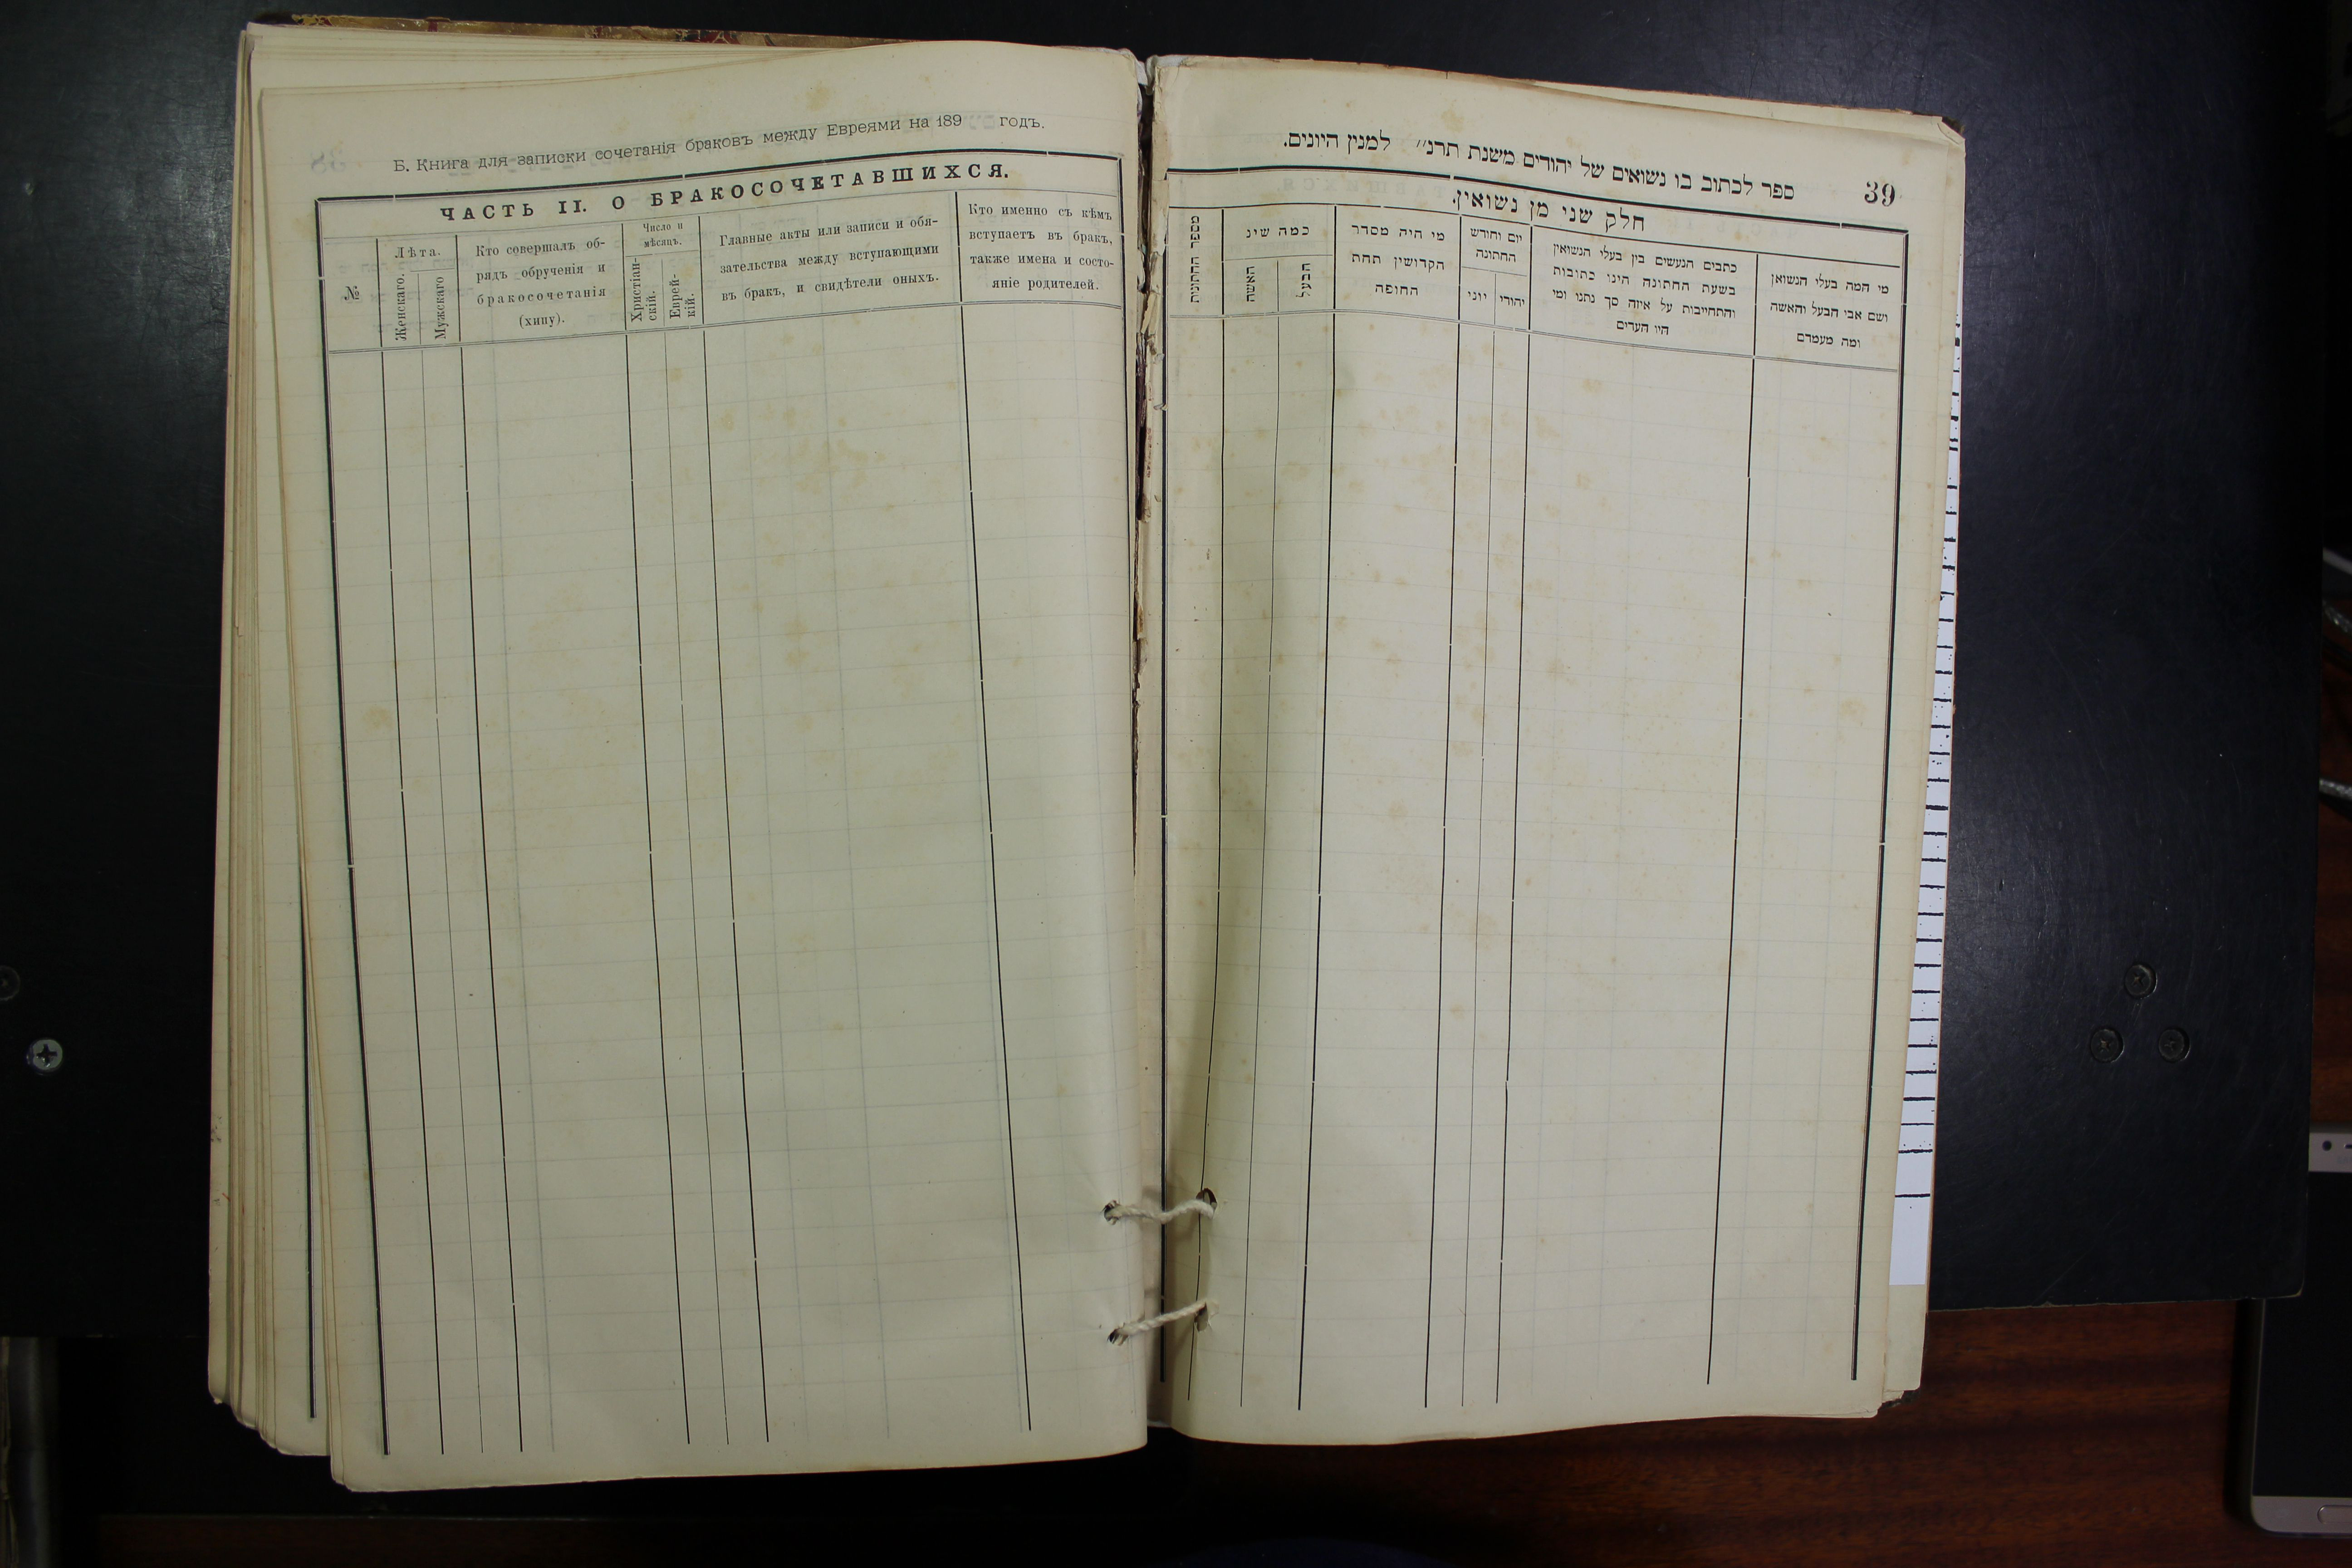 Б. Книга для записки сочетанія браковъ между Евреями на 189 годъ.
ЧАСТЬ II. О БРАКОСОЧЕТАВШИХСЯ.
№
Лѣта.
Женскаго.
Мужскаго
Кто совершалъ об-
рядъ обрученія и
бракосочетанія
(хипу).
Число и
мѣсяцъ.
Христіан-
скій.
Еврей-
кій.
Главные акты или записи и обя-
зательства между вступающими
въ бракъ, и свидѣтели оныхъ.
Кто именно съ кѣмъ
вступаетъ въ бракъ,
также имена и состо-
яніе родителей.
39
ספר לכתוב בו נשואים של יהודים משנת תרנ״ למנין היונים.
חלק שני מן נשואין.
מי המה בעלי הנשואן
ושם אבי הבעל והאשה
ומה מעמדם
כתבים הנעשים בין בעלי הנשואין
בשעת החתונה היינו כתובות
והתחייבות על איזה סך נתנו ומי
היו העדים
יום וחודש
החתונה
יהודי
יוני
מי היה מסדר
הקדושין תחת
החופה
כמה שינ
הבעל
האשה
מספר החתונות